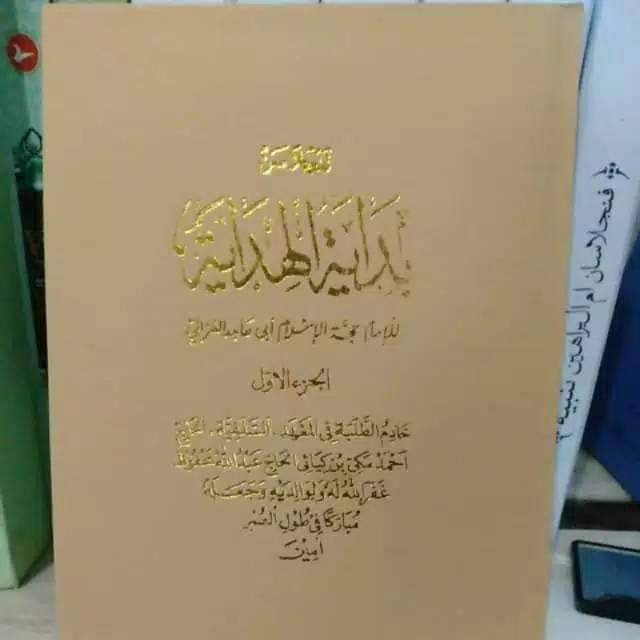 بداية الهداية
للإمام حجة الإسلام أبي حامد الغزالي
الجزء الأول
خادم الطلبة في المعهد السلفية الحاج
أحمد مكي بن كياهي الحاج عبد الله محفوظ
غفر الله له ولوالديه وجعله
مباركا في طول العمر
آمين
فتجلاسان ام البراهين